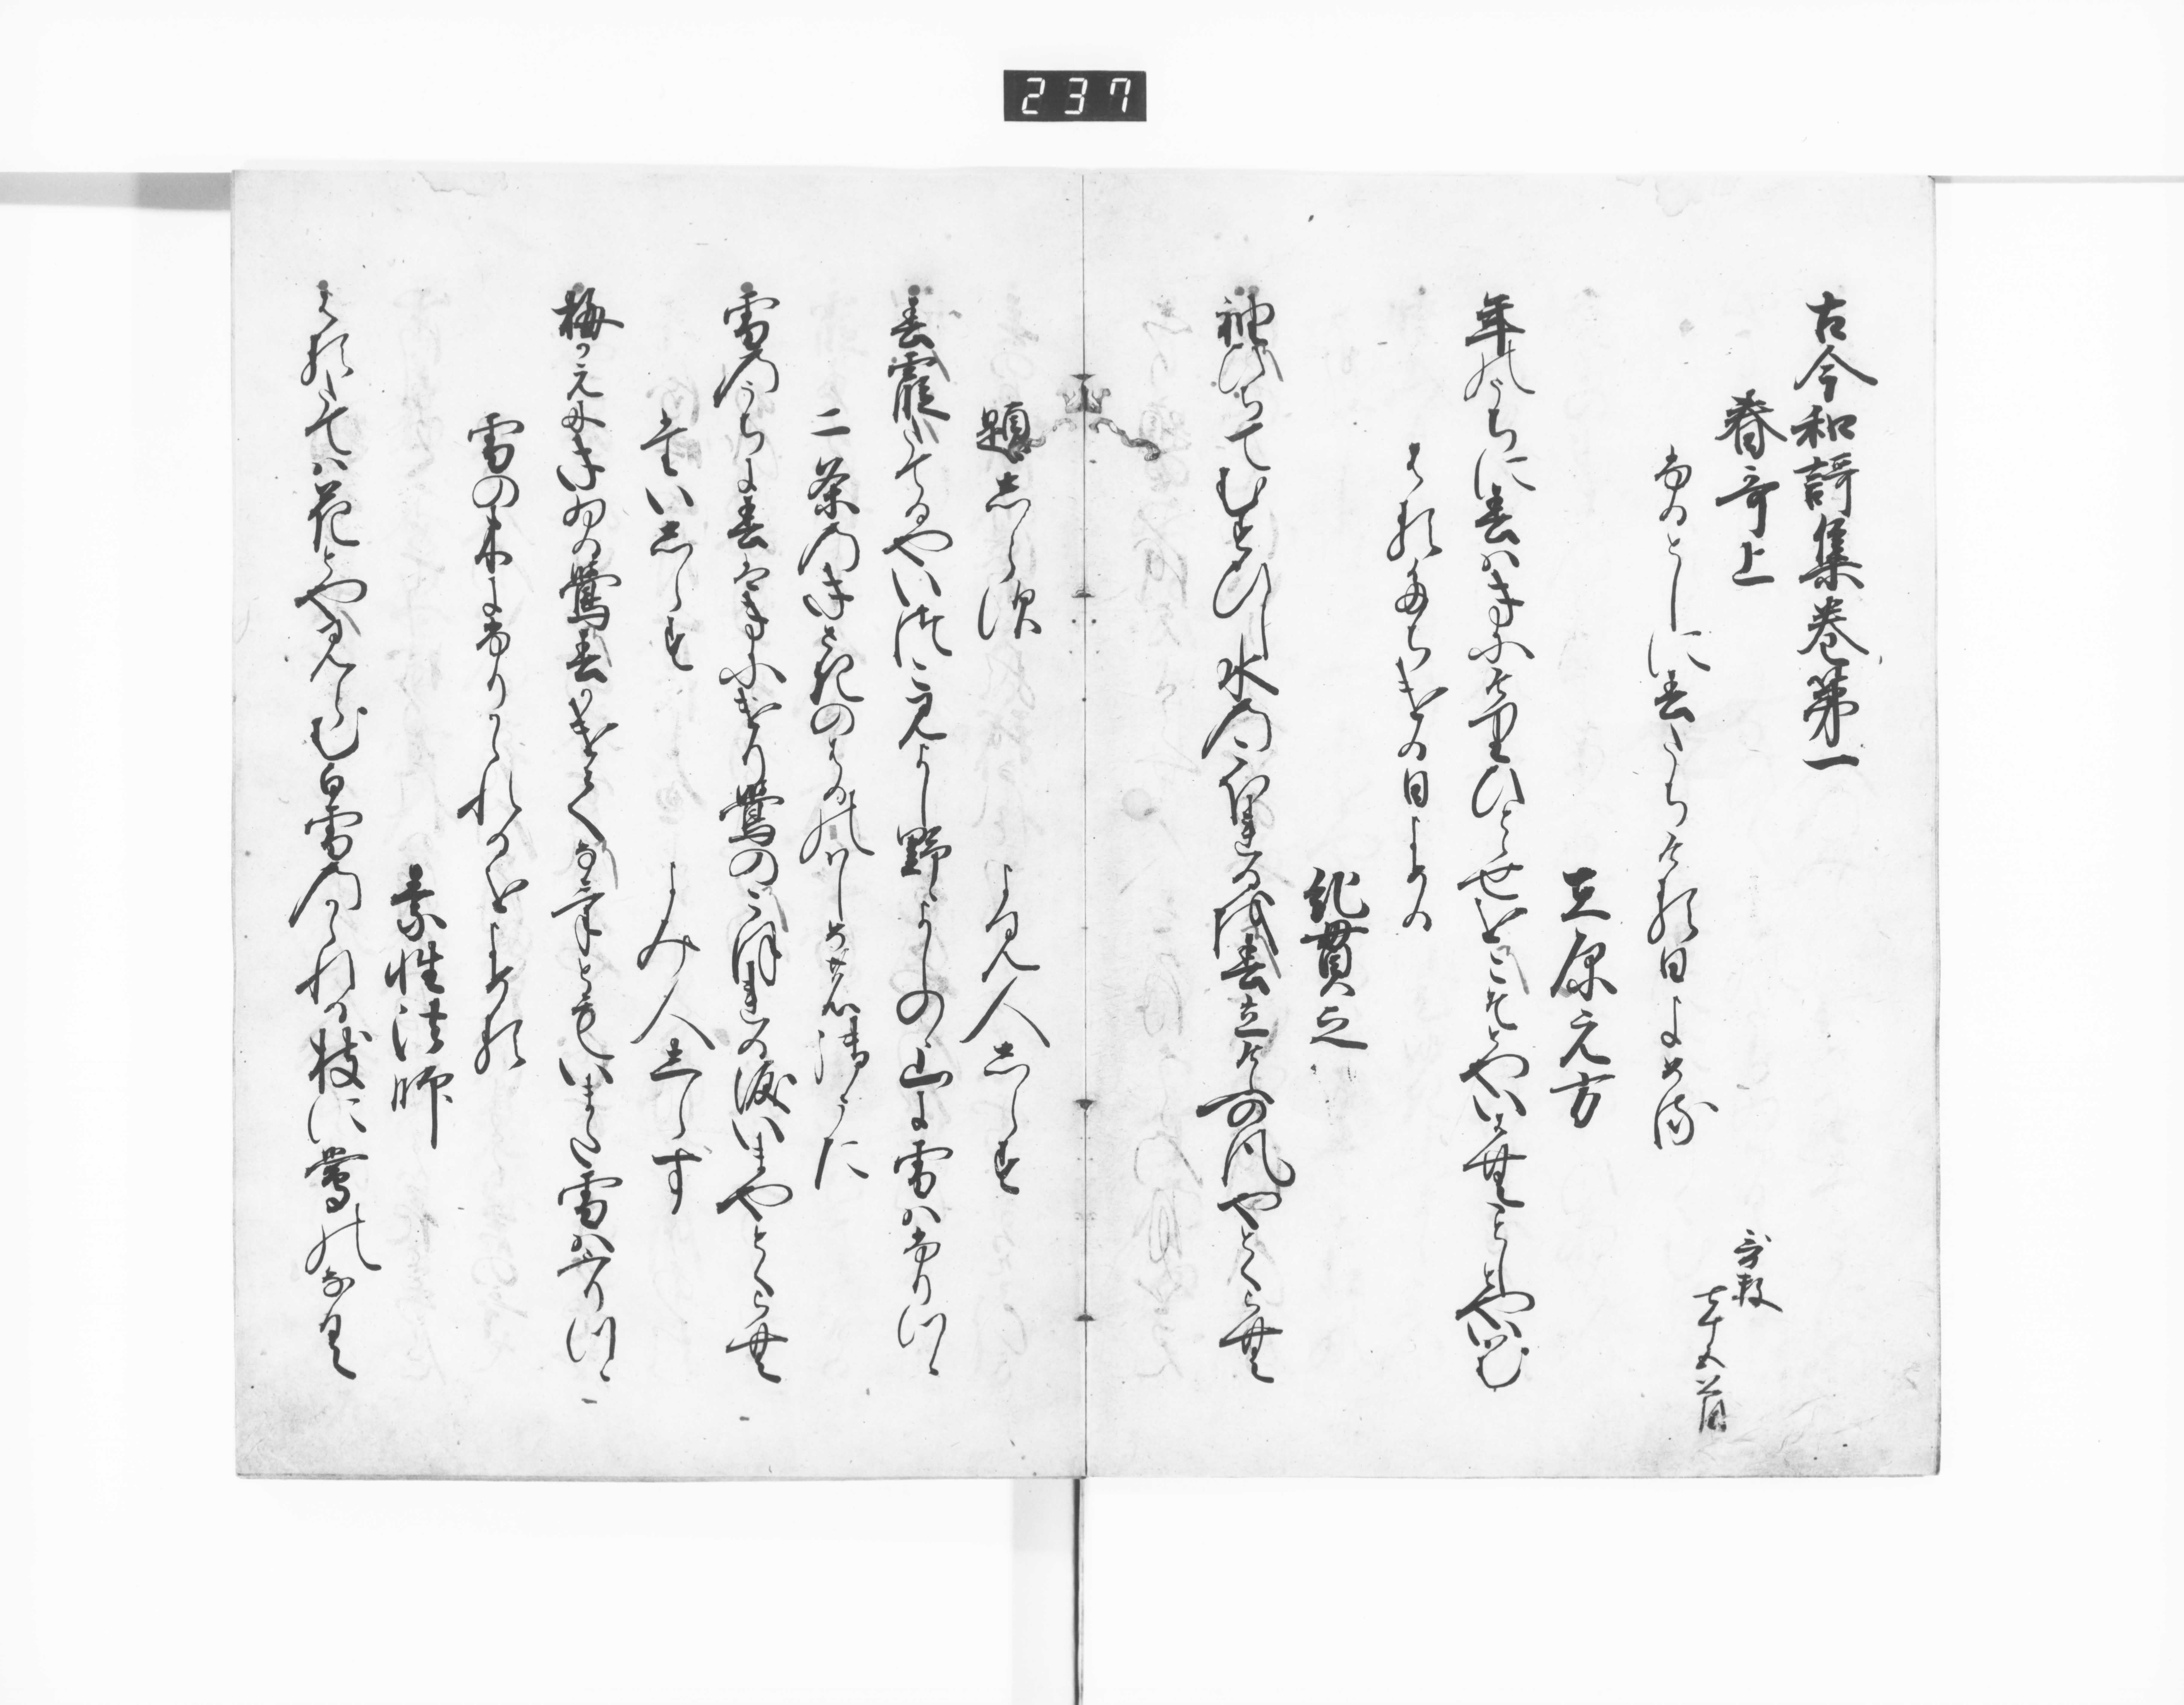 237
古今和謌集巻第一
春哥上
哥数
六十八首
ふるとしに春たちける日よめる
在原元方
年のうちに春はきにけりひとせをこそとやいはむことしとやいはむ
はるたちける日よめる
紀貫之
袖ひちてむすひし水のこほれるを春立けふの風やとくらむ
題しらす
よみ人しらす
春霞たてるやいつこみよし野ゝよしのゝ山に雪はふりつゝ
二条のきさきのはるのはしめの御うた
雪のうちに春はきにけり鶯のこほれる涙いまやとくらむ
たいしらす
よみ人しらす
梅かえにきゐる鶯春かけてなけともいまた雪はふりつゝ
雪の木にふりかゝれるをよめる
素性法師
はるたては花とやみらむ白雪のかゝれる枝に鶯のなく